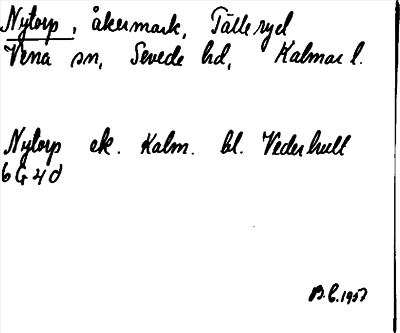 Nytorp, åkermark, Tälleryd
Vena sn, Sevede hd, Kalmar l.
Nytorp ek. Kalm. bl. Vederhult
6 G 4 d
B.C. 1957